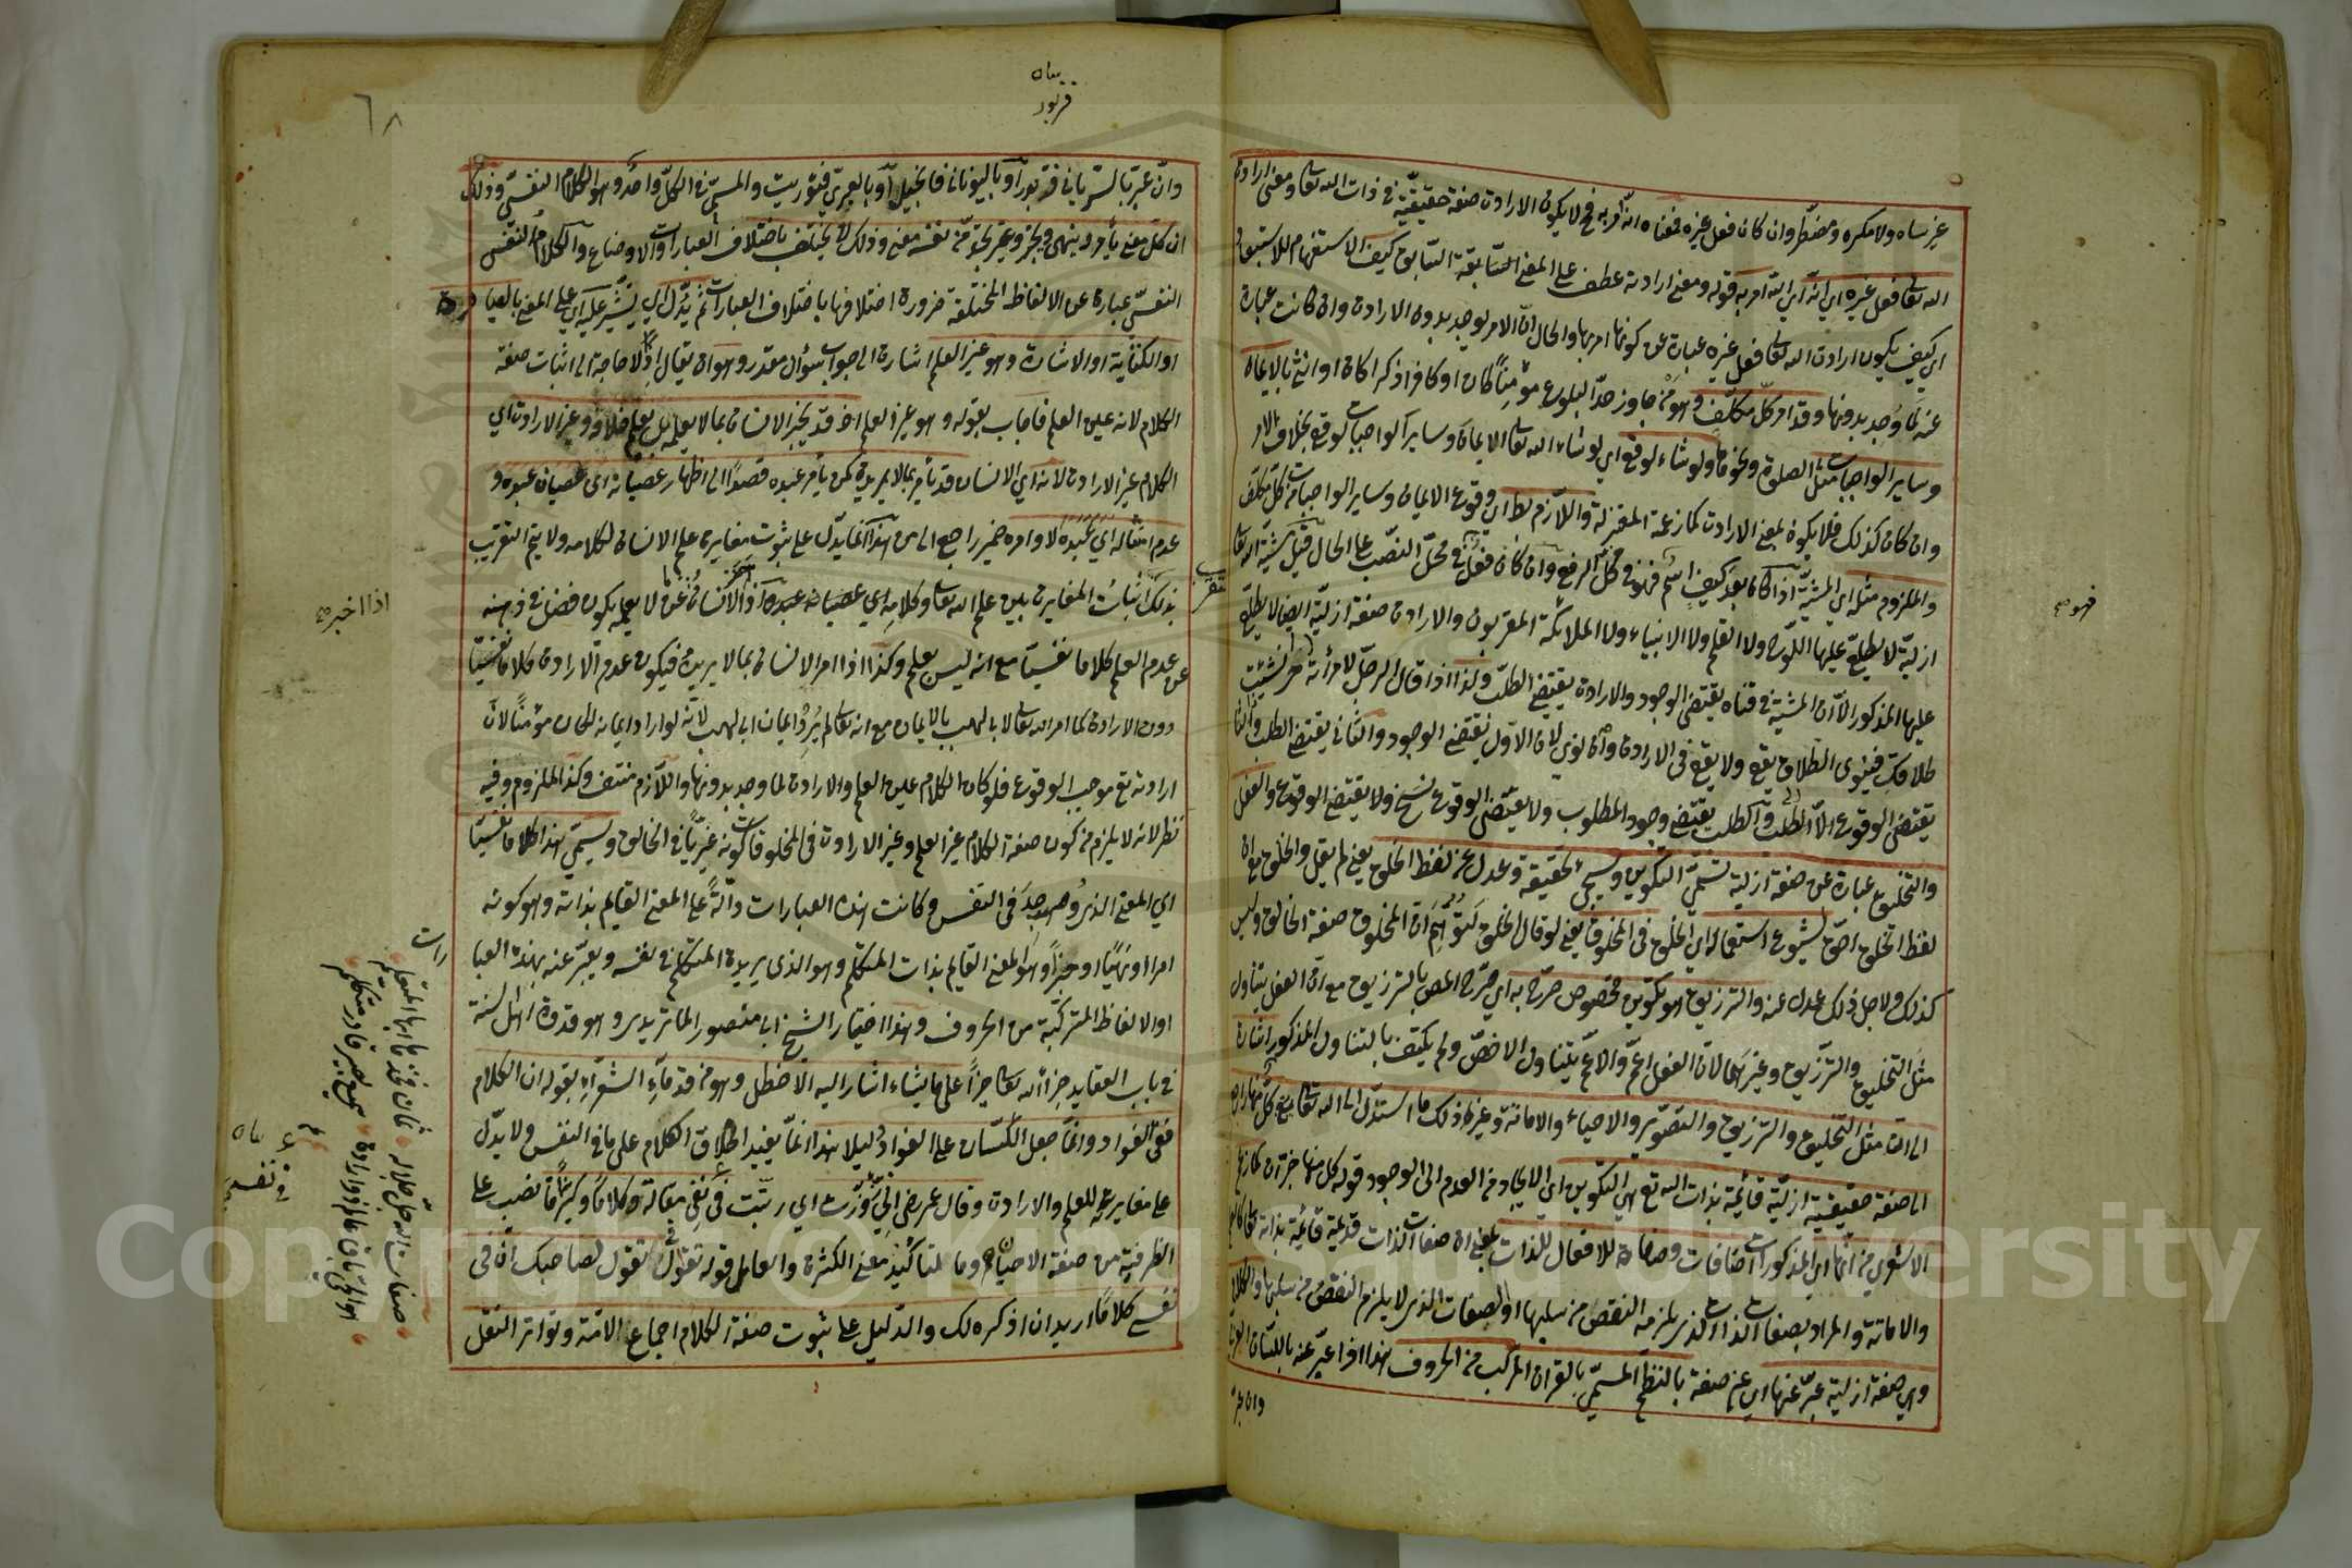 غير ساه ولا مكره ومضطر وان كان فعل غيره فمعناه انه آمر به فح لا يكون الارادة صفة حقيقية في ذات الله تعا ومعنى ارادة
الله تعا فعل غيره اي انه اي الله امر به قوله ومعنى ارادته عطف على المعنى السابقة السابق كيف الاستفهام للاستبعاد
اي كيف يكون ارادة الله تعا فعل غيره عبارة عن كونها امر بها والحال ان الامر يوجد بدون الارادة وان كانت عبارة
عنه لما وجد بدونها وقد امر كل مكلف وهو من جاوز حد البلوغ مؤمنا كان او كافرا ذكرا كان او انثى بالايمان
وساير الواجبات مثل الصلوة ونحوها ولو شاء لوقع اي لو شاء الله تعا الايمان وساير الواجبات لوقع بخلاف الامر
وان كان كذلك فلا يكون بمعنى الارادة كما زعمه المعتزلة واللازم بط اي وقوع الايمان وساير الواجبات من كل مكلف
والملزوم مثله اي المشية اذا كان بعد كيف اسم فهو في محل الرفع وان كان فعل في محل النصب على الحال قيل مشية الله تعا
ازلية لا يطلع عليها اللوح ولا القلم ولا الانبياء ولا الملائكة المقربون والارادة صفة ازلية ايضا لا يطلع
عليها المذكور الا ان المشية في قناه يقتضى الوجود والارادة يقتضي الطلب ولذا اذا قال الرجل لامرأته شئت
طلاقك فينوى الطلاق يقع ولا يقع في الارادة وان نوى لان الاول يقتضي الوجود والثاني يقتضي الطلب
يقتضى الوقوع الا الطلب والطلب يقتضي وجود المطلوب ولا يقتضى الوقوع ولا يقتضي الوقوع والفعل
والتخليق عبارة عن صفة ازلية تسمى التكوين وسيجئ تحقيقه وعدل عن لفظ الخلق يعني لم يقل والخلق مع ان
لفظ الخلق اصح لشيوع استعماله اي الخلق في المخلوق يعني لو قال الخلق لتوهم ان المخلوق صفة الخالق وليس
كذلك ولاجل ذلك عدل عنه والترزيق هو تكوين مخصوص صرح به اي صرح المص بالترزيق مع ان الفعل يتناول
مثل التخليق والترزيق وغيرهما لان الفعل اعم والاعم يتناول الاخص ولم يكتف بالتناول المذكور اشارة
الى ان مثل التخليق والترزيق والتصوير والاحياء والاماتة وغير ذلك ما استدل الى الله تعا كل منها راجع
الى صفة حقيقية ازلية قائمة بذات الله تع هي التكوين اي الايجاد من العدم الى الوجود قوله كل منها خبر ان كما زعم
الاشعري من انها اي المذكورات اضافات وصفاة للافعال للذات بمعنى ان صفات الذات قديمة قائمة بذاته
والاماتة والمراد بصفات الذات الذي يلزم النقص من سلبها والصفات الذي لا يلزم النقص من سلبها والكلام
وهي صفة ازلية عبر عنها اي عن صفة بالنظم المسمى بالقران المركب من الحروف هذا اذا عبر عنه باللسان العربي
وان عبر
فهو صح
بيان
قربور
٦٨
وان عبر بالسرياني فزبور او باليوناني فانجيل او بالعبري فتوريت والمسمى في الكل واحد وهو الكلام النفسي وذلك
ان كل معنى يأمر وينهى ويخبر وغير يجد من نفسه معنى وذلك لا يختلف باختلاف العبارات والاوضاع والكلام النفسي
النفسي عبارة عن الالفاظ المختلفة ضرورة اختلافها باختلاف العبارات ثم يدل اي يشير عليه اي على المعنى بالعبارة
او الكتابة او الاشارة وهو غير العلم اشارة الى جواب سؤال مقدر وهو ان يقال اذ لا حاجة الى اثبات صفة
الكلام لانه عين العلم فاجاب بقوله وهو غير العلم اذ قد يخبر الانسان بما لا يعلم بل يعلم خلافه وغير الارادة اي
الكلام غير الارادة لانه اي الانسان قد يأمر بما لا يريده كمن يأمر عبده قصدا الى اظهار عصيانه اى عصيان عبده و
عدم امتثاله اي عبده لاوامره ضمير راجع الى من هذا انما يدل على ثبوت مغايرة علم الانسان لكلامه ولا يتم التقريب
بذلك اثبات المغايرة بين علم الله تعا وكلامه اي عصيانه عبده اذ الانسان عن لا يعلمه يكون فضل في ذهنه
عن عدم العلم كلاما نفسيا مع انه ليس بعلم وكذا اذا امر الانسان بما لا يريده فيكون عدم الارادة كلاما نفسيا
دون الارادة كما امر الله تعا لابا لهب بالايمان مع انه تعا لم يرد ايمان ابي لهب لانه لو اراد ايمانه لكان مؤمنا لان
ارادته تع موجب الوقوع فلو كان الكلام عين العلم والارادة لما وجد بدونها واللازم منتف وكذا الملزوم وفيه
نظر لانه لا يلزم من كون صفة الكلام غير العلم وغير الارادة في المخلوقات كونه غيريا في الخالق ويسمى هذا كلاما نفسيا
اي المعنى الذي وجد في النفس وكانت هذه العبارات دالة على المعنى القايم بذاته وهو كونه
امرا او نهيا او خبرا وهو المعنى القايم بذات المتكلم وهو الذى يريده المتكلم في نفسه ويعبر عنه بهذه العبا
رات
او الالفاظ المتركبة من الحروف وهذا اختيار الشيخ ابي منصور الماتريدي وهو قدوة اهل السنة
في باب العقايد جزاه الله تعا خيرا على ما يشاء اشار اليه الاخطل وهو من قدماء الشعراء بقوله ان الكلام
لفي الفؤاد وانما جعل اللسان على الفؤاد دليلا هذا انما يفيد اطلاق الكلام على ما في النفس ولا يدل
على مغايرته للعلم والارادة وقال عمر رض اني زورت اي رتبت في نفسي مقالة وكلاما وكثيرا ما نصب على
الظرفية من صفة الاحيان وما لتاكيد معنى الكثرة والعامل قوله تقول تقول لصاحبك ان في
نفسي كلاما اريد ان اذكره لك والدليل على ثبوت صفة الكلام اجماع الامة وتواتر النقل
اذا اخبر صح
بيان
في نفسي
صفات الله جل جلاله
هو الحي باق عالم ذو ارادة سميع بصير قادر متكلم